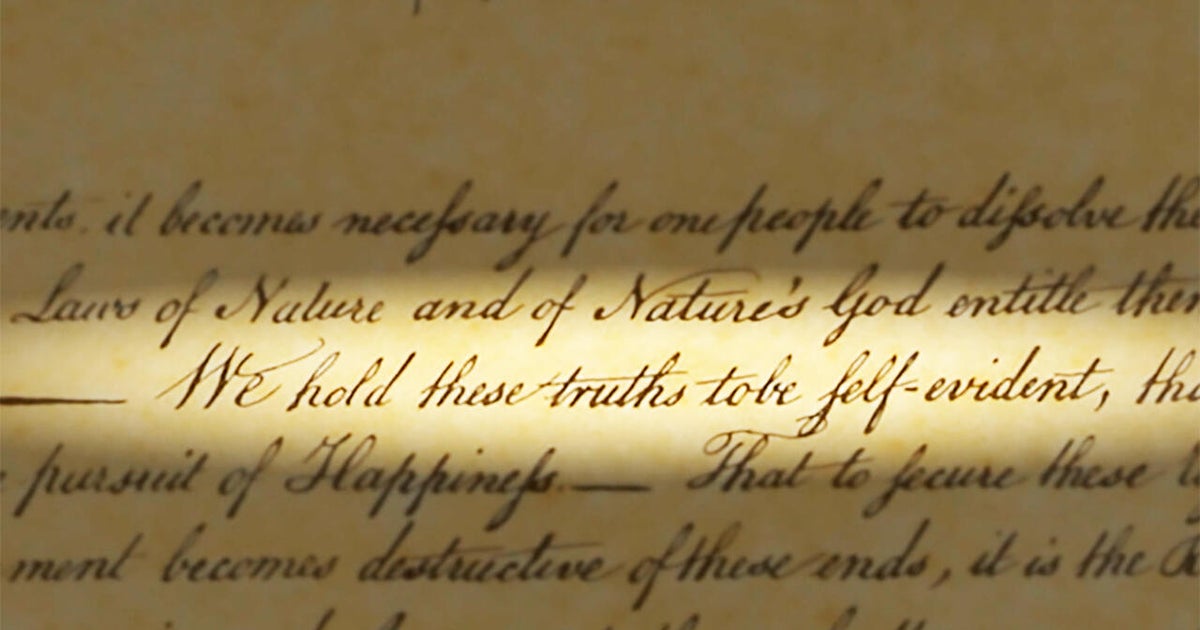 ents. it becomes neceſsary for one people to diſsolve the
Laws of Nature and of Nature's God entitle them
We hold these truths to be ſelf-evident, tha
pursuit of Happineſs. — That to ſecure these
ment becomes destructive of these ends, it is the R